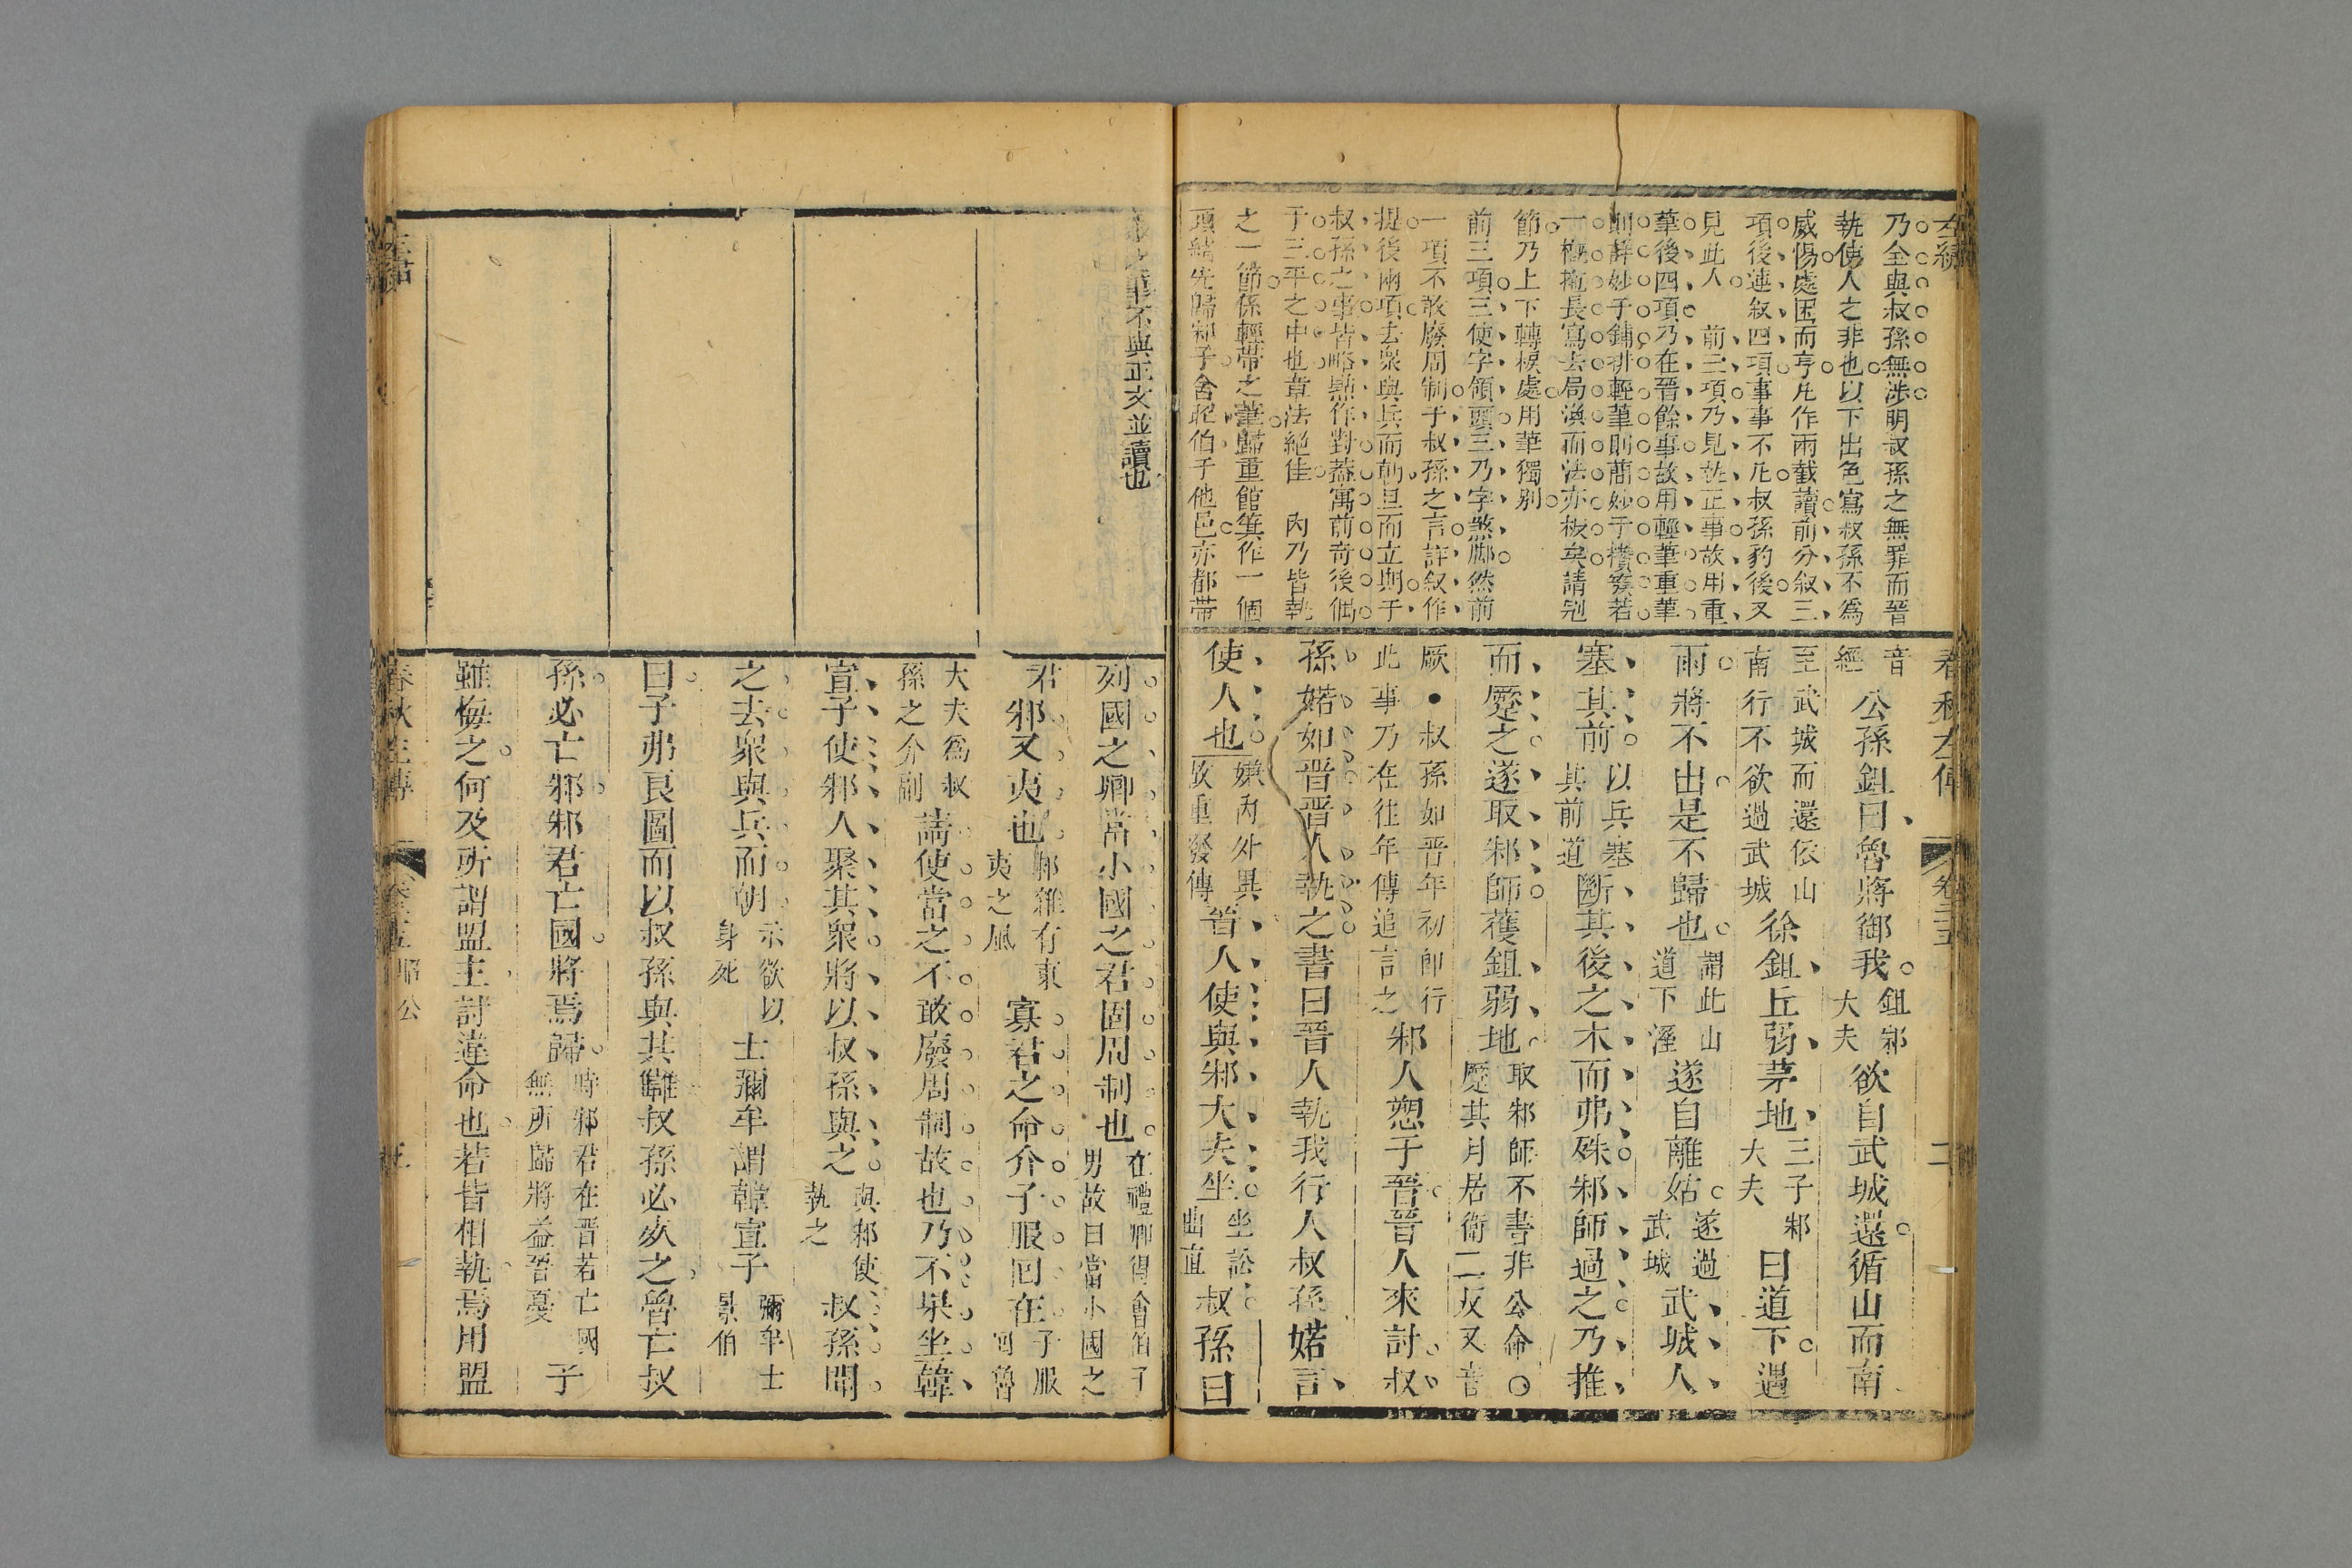 左繡
乃全與叔孫無涉明叔孫之無罪而晉
執使人之非也以下出色寫叔孫不為
威惕處困而亨凡作兩截讀前分叙三
項後連叙四項事事不凡叔孫豹後又
見此人　前三項乃見執正事故用重
筆後四項乃在晉餘事故用輕筆重筆
則詳妙于鋪排輕筆則簡妙于攢簇若
一概拖長寫去局渙而法亦板矣請冠
節乃上下轉棙處用筆獨別
前三項三使字領頭三乃字煞脚然前
一項不敢廢周制于叔孫之言詳叙作
提後兩項去衆與兵而朝旦而立期于
叔孫之事皆略點作對蓋寓前奇後偶
于三平之中也章法絶佳　內乃皆執
之一節係輕帶之筆歸重館箕作一個
項結先歸邾子舍昭伯于他邑亦都帶
春秋左傳　卷二十五　二
音經　公孫鉏曰魯將御我鉏邾大夫欲自武城還循山而南
至武城而還依山南行不欲過武城徐鉏丘弱茅地三子邾大夫曰道下遇
雨將不出是不歸也謂此山道下溼遂自離姑遂過武城武城人
塞其前以兵塞其前道斷其後之木而弗殊邾師過之乃推
而蹷之遂取邾師獲鉏弱地取邾師不書非公命○蹷其月居衛二反又音
厥●叔孫如晉年初即行此事乃在往年傳追言之邾人愬于晉晉人來討叔
孫婼如晉晉人執之書曰晉人執我行人叔孫婼言
使人也嫌內外異故重發傳晉人使與邾大夫坐坐訟曲直叔孫曰
之筆不與正文並讀也
列國之卿當小國之君固周制也在禮卿得會伯子男故曰當小國之
君邾又夷也邾雜有東夷之風寡君之命介子服回在子服回魯
大夫為叔孫之介副請使當之不敢廢周制故也乃不果坐韓
宣子使邾人聚其衆將以叔孫與之與邾使執之叔孫聞
之去衆與兵而朝示欲以身死士彌牟謂韓宣子彌牟士景伯
曰子弗良圖而以叔孫與其讎叔孫必死之魯亡叔
孫必亡邾邾君亡國將焉歸時邾君在晉若亡國無所歸將益晉憂子
雖悔之何及所謂盟主討違命也若皆相執焉用盟
春秋左傳　昭公